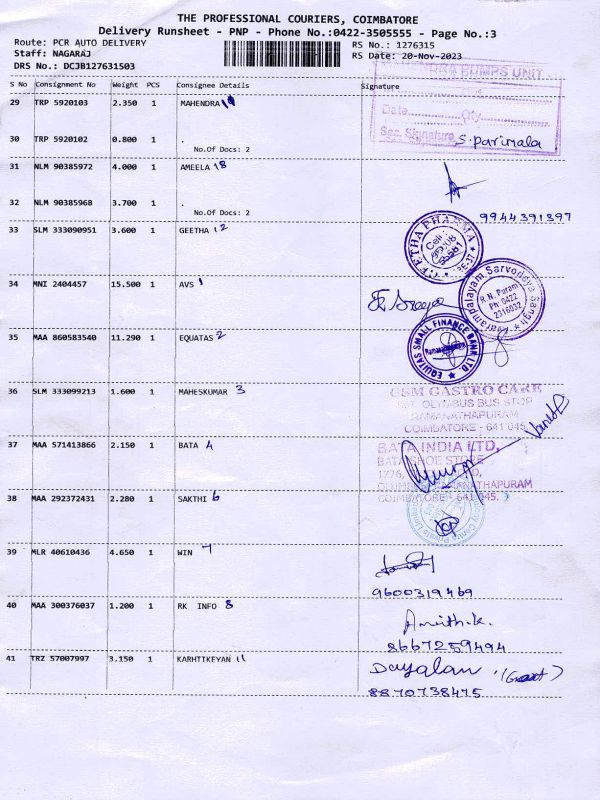 THE PROFESSIONAL COURIERS, COIMBATORE
Delivery Runsheet - PNP - Phone No.:0422-3505555 - Page No.:3
Route: PCR AUTO DELIVERY
RS No.: 1276315
Staff: NAGARAJ
RS Date: 20-Nov-2023
DRS No.: DCJB127631503
S No Consignment No Weight PCS Consignee Details Signature
29 TRP 5920103 2.350 1 MAHENDRA
PUMPS UNIT
Date City
Sec. Signature S. Parimala
30 TRP 5920102 0.800 1 .
No.Of Docs: 2
31 NLM 90385972 4.000 1 AMEELA 18
32 NLM 90385968 3.700 1 .
No.Of Docs: 2
9944391397
33 SLM 333090951 3.600 1 GEETHA 12
GEETHA PHARMA
Cell :
34 MNI 2404457 15.500 1 AVS 1
Sarvodaya Sangh
R.N. Puram
Ph: 0422
2316032
35 MAA 860583540 11.290 1 EQUATAS 2
EQUITAS SMALL FINANCE BANK LTD.
36 SLM 333099213 1.600 1 MAHESKUMAR 3
GSM GASTRO CARE
OLYMBUS BUS STOP
RAMANATHAPURAM
COIMBATORE - 641 045
37 MAA 571413866 2.150 1 BATA 4
BATA INDIA LTD,
BATA SHOE STORE
RAMANATHAPURAM
COIMBATORE - 641 045.
38 MAA 292372431 2.280 1 SAKTHI 6
39 MLR 40610436 4.650 1 WIN 7
9600319469
40 MAA 300376037 1.200 1 RK INFO 8
8667259494
41 TRZ 57007997 3.150 1 KARHTIKEYAN 11
Dayalan
8870738475